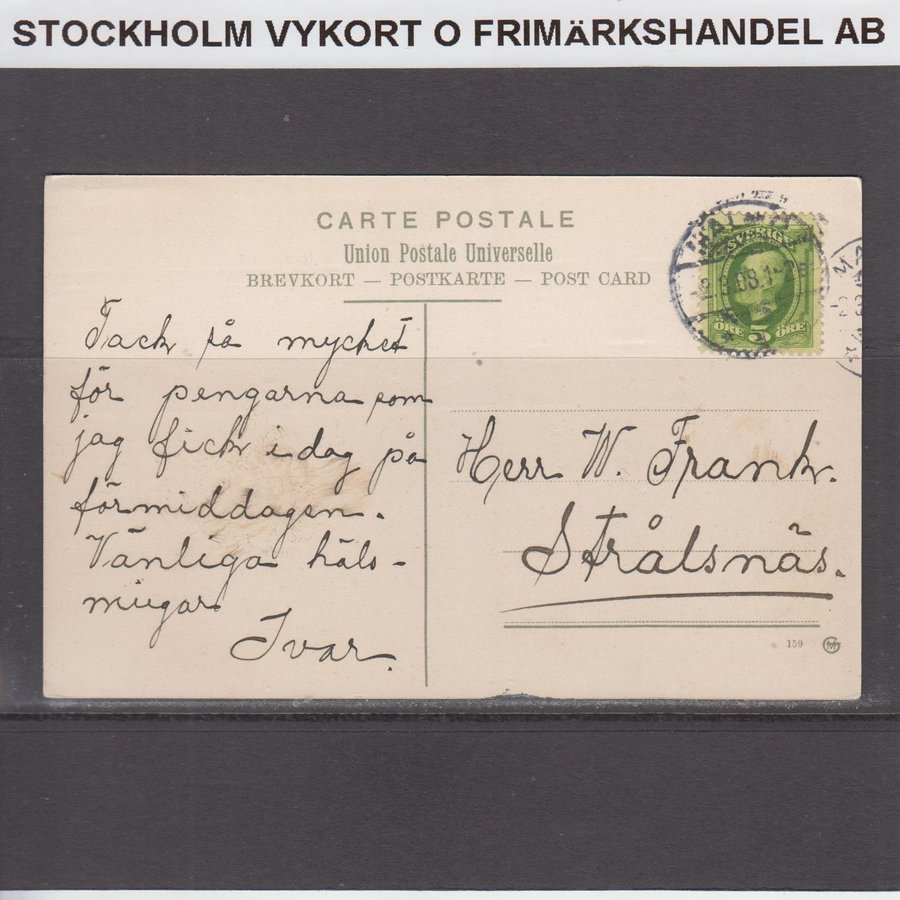 STOCKHOLM VYKORT O FRIMÄRKSHANDEL AB
CARTE POSTALE
Union Postale Universelle
BREVKORT — POSTKARTE — POST CARD
SVERIGE
ÖRE 5 ÖRE
Tack så mycket
för pengarna som
jag fick i dag på
förmiddagen.
Vänliga häls-
ningar
Ivar.
Herr W. Frank.
Strålsnäs.
159